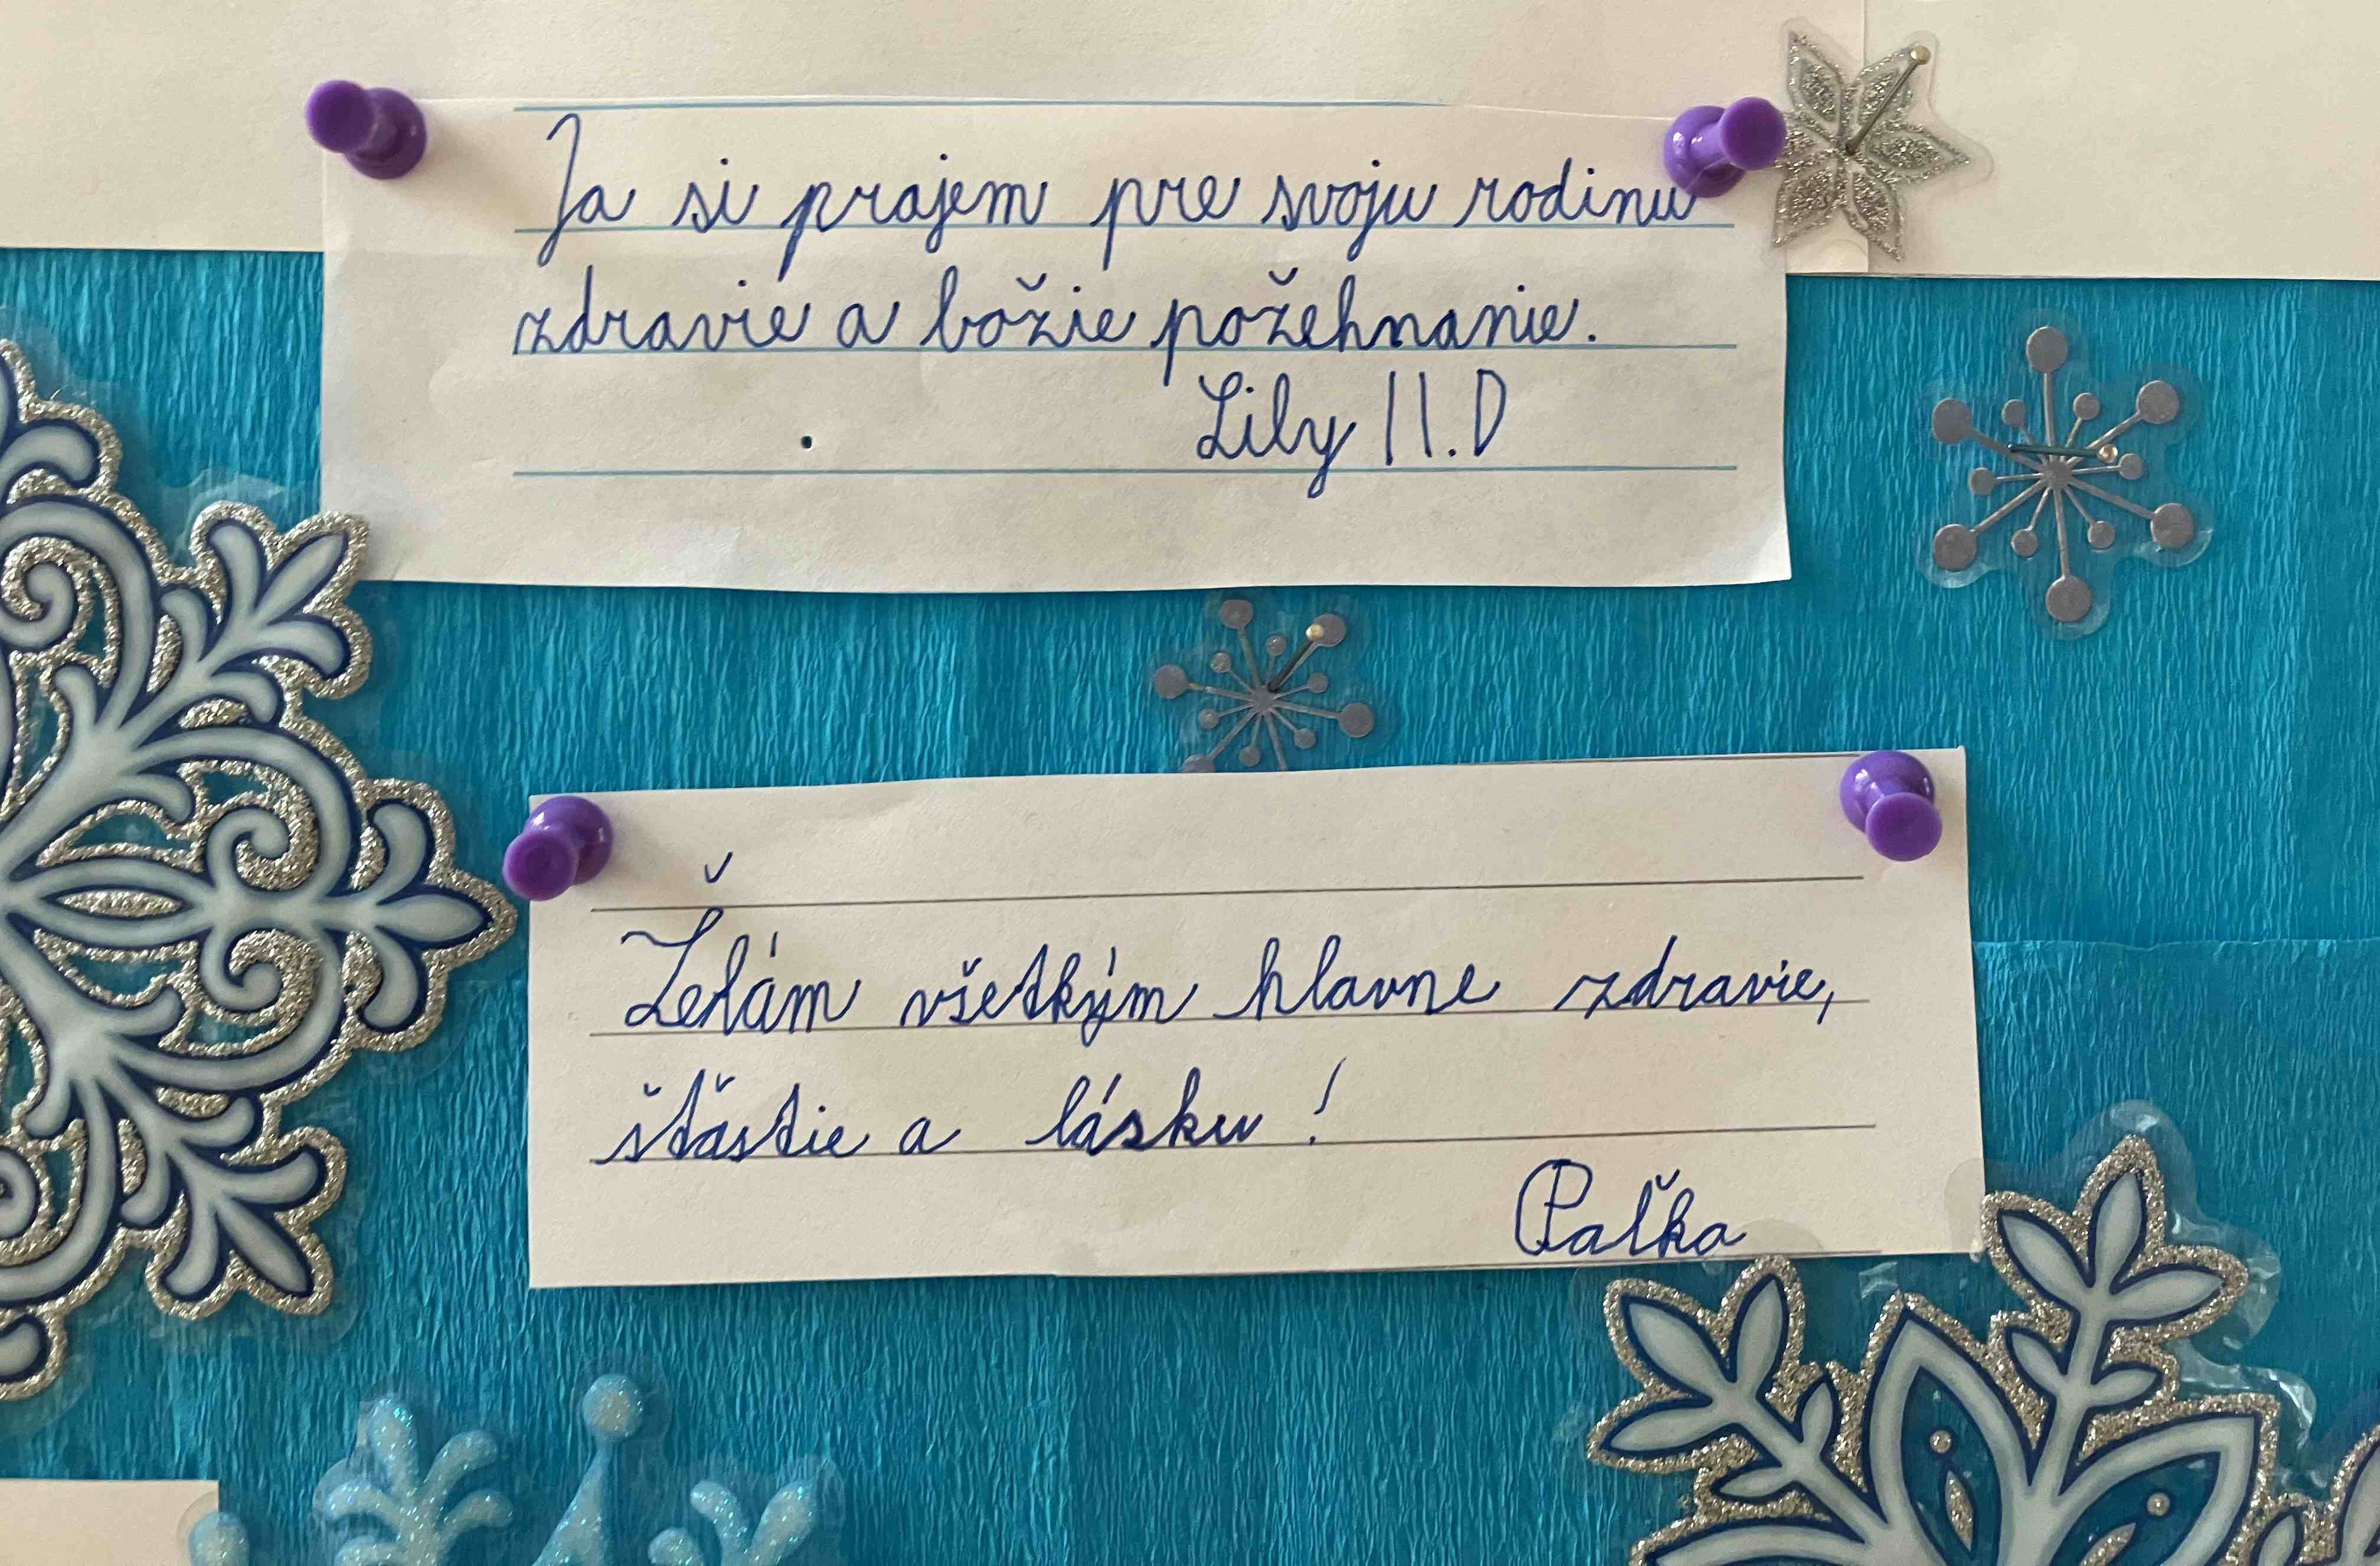 Ja si prajem pre svoju rodinu
zdravie a božie požehnanie.
Lily II.D
Želám všetkým hlavne zdravie,
šťastie a lásku!
Paľka